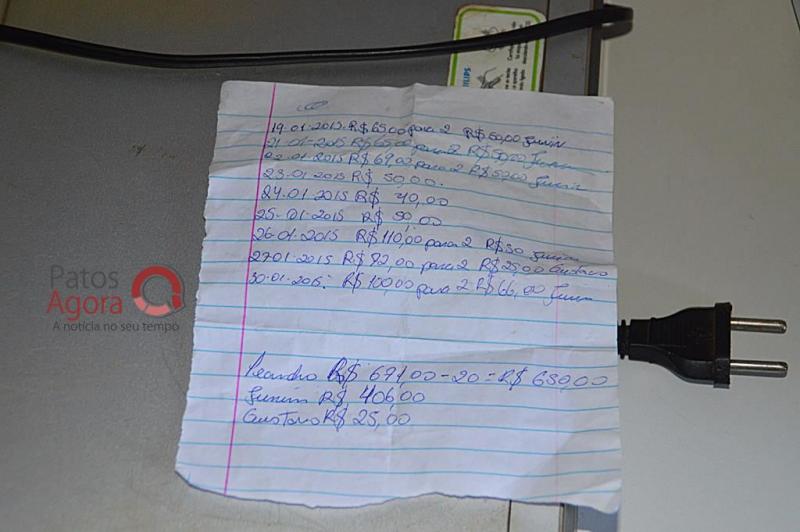 19-01-2015 R$ 65,00 para 2 R$ 60,00 Junin
21-01-2015 R$ 65,00 para 2 R$ 50,00 Junin
22-01-2015 R$ 69,00 para 2 R$ Junin
23-01 2015 R$ 50,00.
24.01 2015 R$ 40,00
25-01-2015 R$ 90,00
26-01-2015 R$ 110,00 para 2 R$ 30 Junin
27-01-2015 R$ 92,00 para 2 R$ 25,00 Gustavo
30-01-2015. R$ 100,00 para 2 R$ 66,00 Junin
Leandro R$ 671,00 - 20 = R$ 650,00
Junin R$ 406,00
Gustavo R$ 25,00
Patos
Agora
A notícia no seu tempo